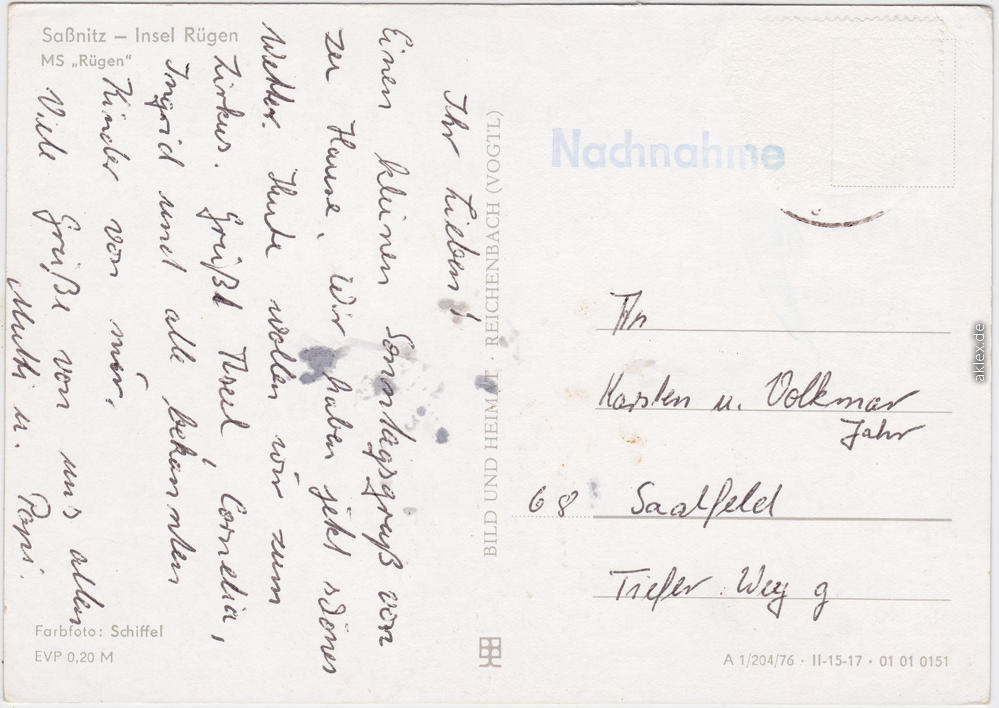 Saßnitz – Insel Rügen
MS „Rügen“
Ihr Lieben!
Einen kleinen Sonntagsgruß von
zu Hause. Wir haben jetzt schönes
Wetter. Heute wollen wir zum
Zirkus. Grüßt Axel, Cornelia,
Ingrid und alle bekannten
Kinder von mir.
Viele Grüße von uns allen
Mutti u. Papi.
Farbfoto: Schiffel
EVP 0,20 M
BILD UND HEIMAT · REICHENBACH (VOGTL)
Nachnahme
An
Karsten u. Volkmar
Jahr
68 Saalfeld
Tiefer Weg 9
A 1/204/76 · II-15-17 · 01 01 0151
aklex.de